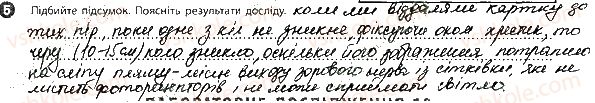 5 Підбийте підсумок. Поясніть результати досліду. коли ми віддаляємо картку до
тих пір, поки одне з кіл не зникне фіксуючи оком хрестик, то
чру (10-15см) коло зникло, оскільки його зображення потрапило
на сліпу пляму - місце виходу зорового нерва із сітківки, яке не
містить фоторецепторів і не може сприймати світло.
ЛАБОРАТОРНЕ ДОСЛІДЖЕННЯ